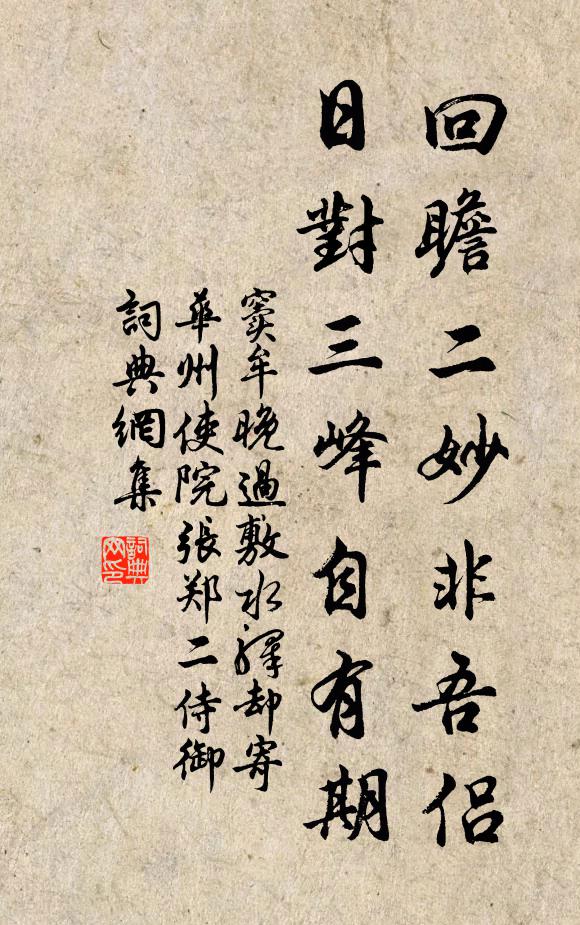 回瞻二妙非吾侶
日對三峰自有期
竇牟晚過敷水驛却寄
華州使院張郑二侍御
詞典網集
詞典
网印